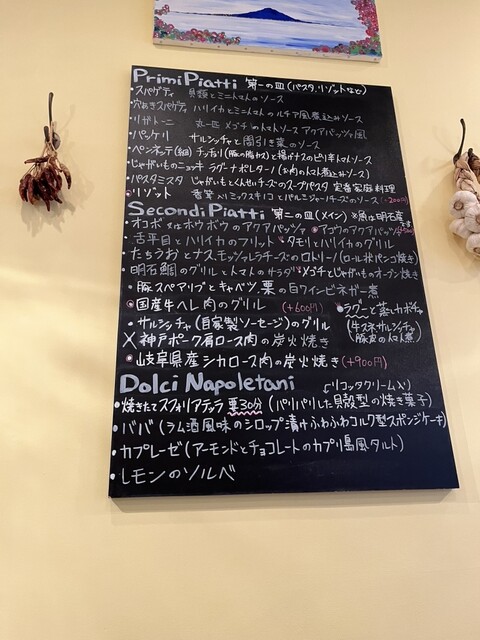 Primi Piatti 第一の皿(パスタ、リゾットなど)
・スパゲティ 貝類とミニトマトのソース
・穴あきスパゲティ ハリイカとミニトマトのルチア風煮込みソース
・リガトーニ 丸一匹メゴチのトマトソース アクアパッツァ風
・パッケリ サルシッチャと間引き菜のソース
・ペンネッテ(細) チッチョリ(豚の脂カス)と揚げナスのピリ辛トマトソース
・じゃがいものニョッキ ラグーナポレターノ(牛肉のトマト煮込みソース)
・パスタミスタ じゃがいもとくんせいチーズのスープパスタ 定番家庭料理
・リゾット 香草入りミックスキノコとパルミジャーノチーズのソース(+200円)
Secondi Piatti 第二の皿(メイン) ※魚は明石産
・オコボ又はホウボウのアクアパッツァ ・アコウのアクアパッツァ
・舌平目とハリイカのフリット ・タモリとハリイカのグリル
・たちうおとナス、モッツァレラチーズのロトリーノ(ロール状パン粉焼き)
・明石鯛のグリルとトマトのサラダ ・メゴチとじゃがいものオーブン焼き
・豚スペアリブとキャベツ、栗の白ワインビネガー煮
・国産牛ヘレ肉のグリル (+600円) ・ラグーと蒸しカボチャ
・サルシッチャ(自家製ソーセージ)のグリル (牛スネ、サルシッチャ、
×神戸ポーク肩ロース肉の炭火焼き 豚皮のトマト煮)
・山岐阜県産シカロース肉の炭火焼き(+900円)
Dolci Napoletani リコッタクリーム入り
・焼きたてスフォリアテッラ 要30分(パリパリした貝殻型の焼き菓子)
・ババ(ラム酒風味のシロップ漬けふわふわコルク型スポンジケーキ)
・カプレーゼ(アーモンドとチョコレートのカプリ島風タルト)
・レモンのソルベ